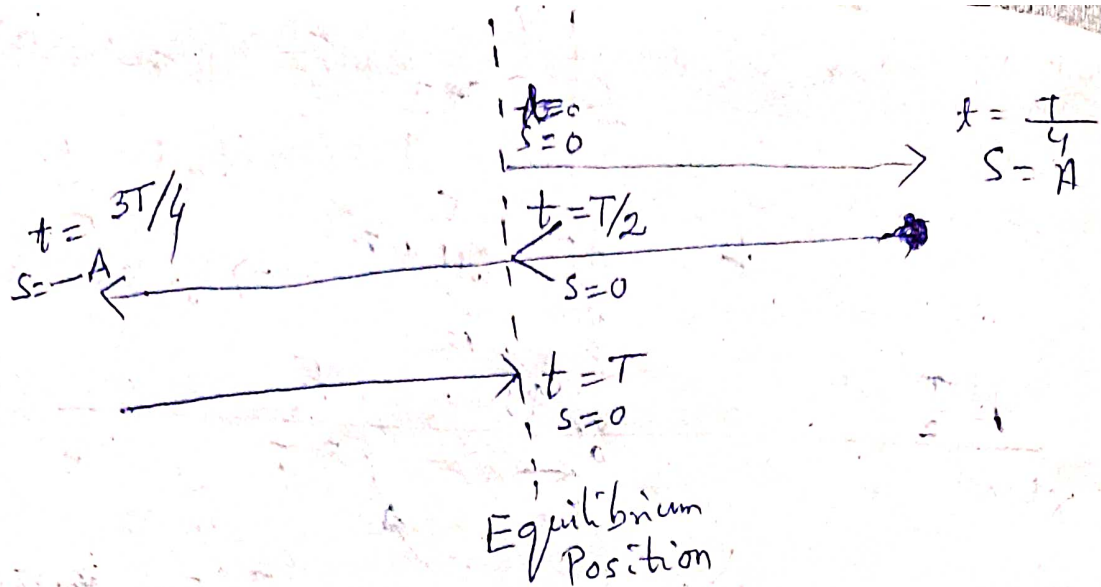 t=0
S=0
t = T/4
S = A
t = T/2
S=0
t = 3T/4
S=-A
t = T
S=0
Equilibrium
Position